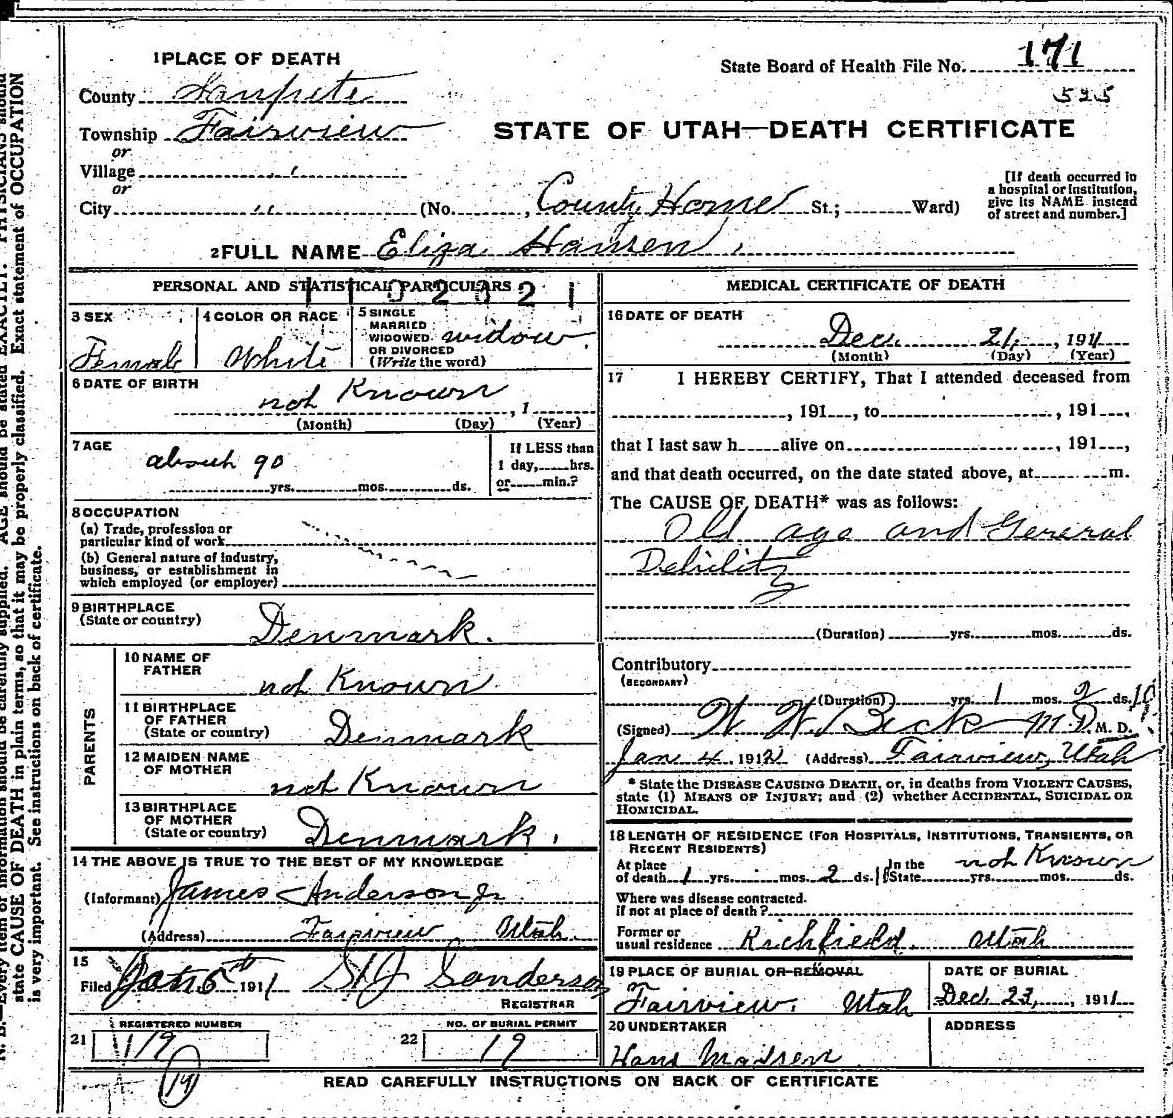 1 PLACE OF DEATH
State Board of Health File No. 171
525
County Sanpete
Township Fairview
or
Village "
or
City " (No. , County Home St.; Ward)
[If death occurred in
a hospital or institution,
give its NAME instead
of street and number.]
STATE OF UTAH—DEATH CERTIFICATE
2 FULL NAME Eliza Hansen
PERSONAL AND STATISTICAL PARTICULARS
3 SEX
Female
4 COLOR OR RACE
White
5 SINGLE
MARRIED
WIDOWED
OR DIVORCED
(Write the word)
widow
6 DATE OF BIRTH
not Known , 1
(Month) (Day) (Year)
7 AGE
about 90
yrs. mos. ds.
If LESS than
1 day, hrs.
or min.?
8 OCCUPATION
(a) Trade, profession or
particular kind of work
(b) General nature of industry,
business, or establishment in
which employed (or employer)
9 BIRTHPLACE
(State or country)
Denmark.
PARENTS
10 NAME OF
FATHER
not Known
11 BIRTHPLACE
OF FATHER
(State or country)
Denmark
12 MAIDEN NAME
OF MOTHER
not Known
13 BIRTHPLACE
OF MOTHER
(State or country)
Denmark.
14 THE ABOVE IS TRUE TO THE BEST OF MY KNOWLEDGE
(Informant) James Anderson Jr
(Address) Fairview Utah.
15
Filed Jan 5th 1911 Sanderson
REGISTRAR
21 REGISTERED NUMBER
119
22 NO. OF BURIAL PERMIT
19
19
MEDICAL CERTIFICATE OF DEATH
16 DATE OF DEATH
Dec. 21, , 1911
(Month) (Day) (Year)
17 I HEREBY CERTIFY, That I attended deceased from
, 191 , to , 191 ,
that I last saw h alive on , 191 ,
and that death occurred, on the date stated above, at m.
The CAUSE OF DEATH* was as follows:
Old age and General
Debility
(Duration) yrs. mos. ds.
Contributory
(SECONDARY)
(Duration) yrs. 1 mos. 2 ds. 10
(Signed) W. W. Beck M.D. M. D.
Jan 4 1912 (Address) Fairview, Utah
* State the DISEASE CAUSING DEATH, or, in deaths from VIOLENT CAUSES,
state (1) MEANS OF INJURY; and (2) whether ACCIDENTAL, SUICIDAL OR
HOMICIDAL.
18 LENGTH OF RESIDENCE (FOR HOSPITALS, INSTITUTIONS, TRANSIENTS, OR
RECENT RESIDENTS)
At place
of death 1 yrs. mos. 2 ds.
In the
State yrs. mos. ds.
not Known
Where was disease contracted.
if not at place of death?
Former or
usual residence Richfield. Utah
19 PLACE OF BURIAL OR REMOVAL
Fairview. Utah
DATE OF BURIAL
Dec. 23, , 1911
20 UNDERTAKER
Hans Madsen
ADDRESS
READ CAREFULLY INSTRUCTIONS ON BACK OF CERTIFICATE
N. B.—Every item of information should be carefully supplied. AGE should be stated EXACTLY. PHYSICIANS should
state CAUSE OF DEATH in plain terms, so that it may be properly classified. Exact statement of OCCUPATION
is very important. See instructions on back of certificate.